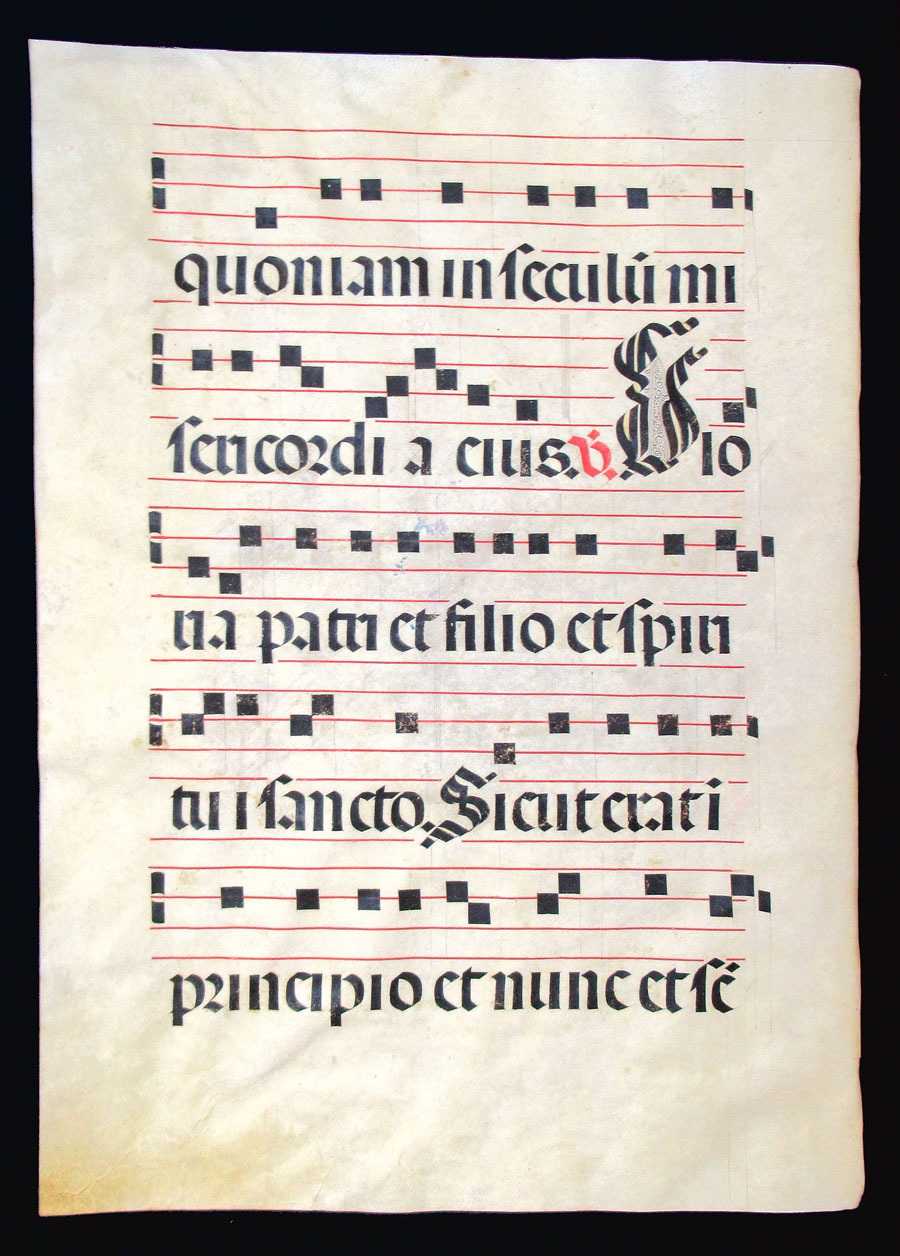 quoniam in seculū mi
sericordi a eius. ℣. Glo
ria patri et filio et spiri
tu i sancto. Sicut erat i
principio et nunc et sē